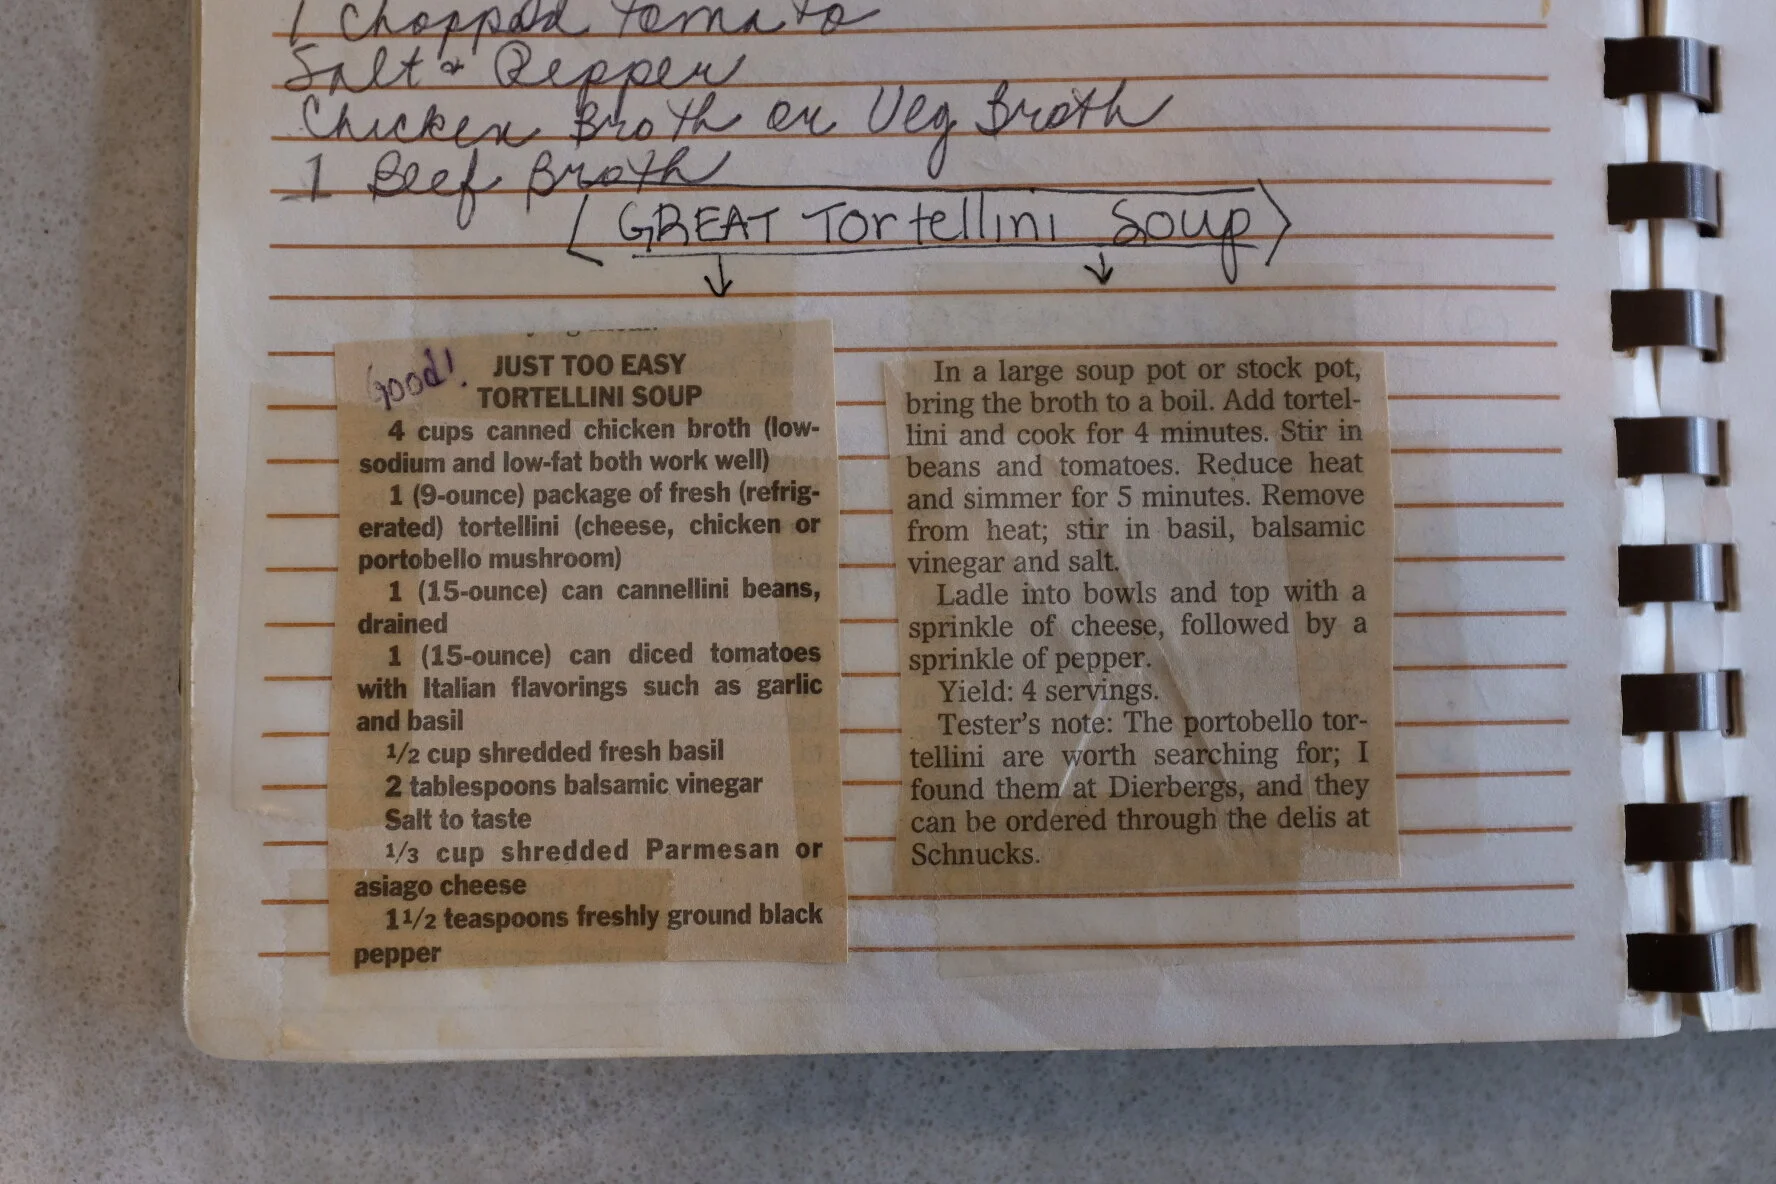 1 Chopped Tomato
Salt & Pepper
Chicken Broth or Veg Broth
1 Beef Broth
GREAT Tortellini Soup
Good!
JUST TOO EASY
TORTELLINI SOUP
4 cups canned chicken broth (low-
sodium and low-fat both work well)
1 (9-ounce) package of fresh (refrig-
erated) tortellini (cheese, chicken or
portobello mushroom)
1 (15-ounce) can cannellini beans,
drained
1 (15-ounce) can diced tomatoes
with Italian flavorings such as garlic
and basil
1/2 cup shredded fresh basil
2 tablespoons balsamic vinegar
Salt to taste
1/3 cup shredded Parmesan or
asiago cheese
1 1/2 teaspoons freshly ground black
pepper
In a large soup pot or stock pot,
bring the broth to a boil. Add tortel-
lini and cook for 4 minutes. Stir in
beans and tomatoes. Reduce heat
and simmer for 5 minutes. Remove
from heat; stir in basil, balsamic
vinegar and salt.
Ladle into bowls and top with a
sprinkle of cheese, followed by a
sprinkle of pepper.
Yield: 4 servings.
Tester's note: The portobello tor-
tellini are worth searching for; I
found them at Dierbergs, and they
can be ordered through the delis at
Schnucks.